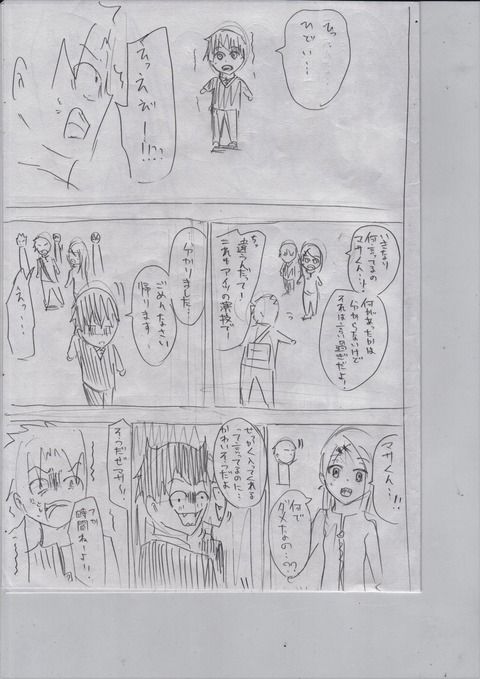 ひっ…
ひどい…
えっえええー!!??
いきなり
何言ってるの
マサくん…!!
何があったかは
分からないけど
それは言い過ぎだよ!
ち、
違うんだって!
これもアイツの演技で!
分かりました…
ごめんなさい
帰ります!
えっ…
マサくん…!!
何で
ダメなの…??
せっかく入ってくれる
って言ってるのに…
かわいそうだよ
そうだぜマサリー!
時間ねーよ!!